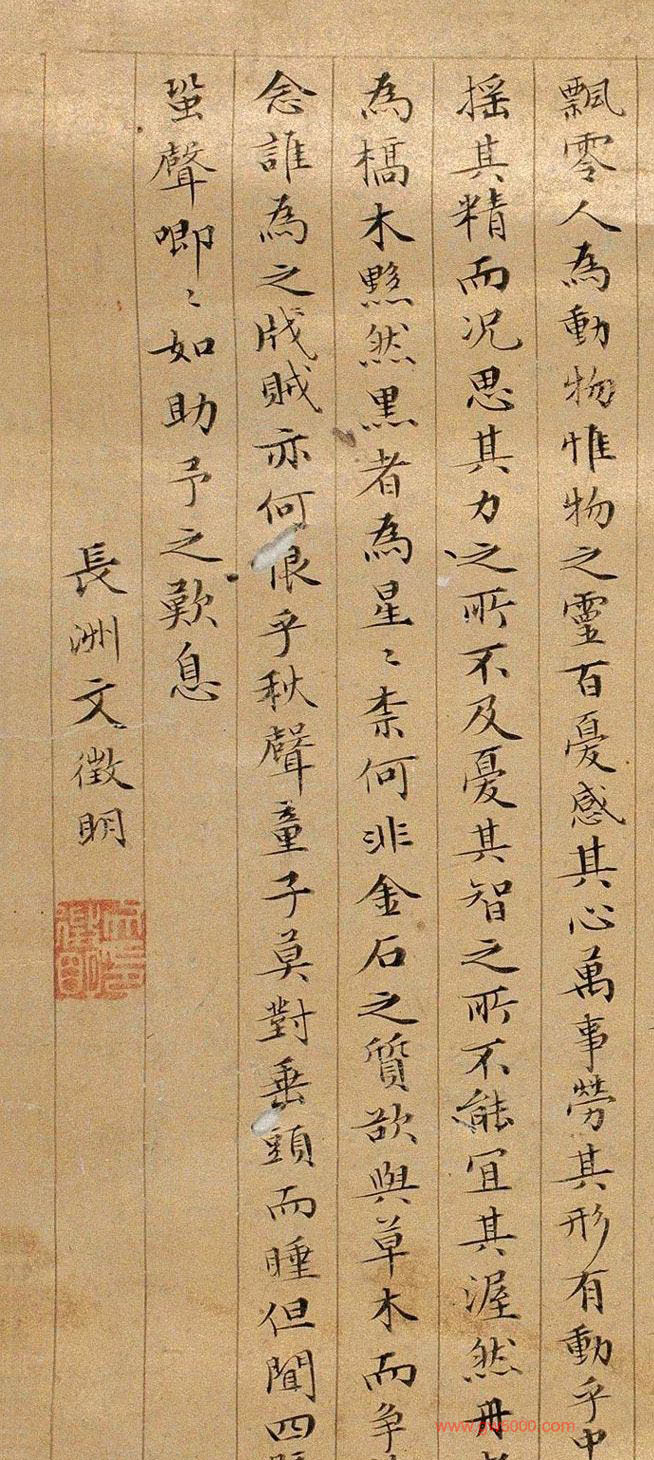 飄零人為動物惟物之靈百憂感其心萬事勞其形有動乎中
搖其精而況思其力之所不及憂其智之所不能宜其渥然丹
為槁木黟然黑者為星〻柰何非金石之質欲與草木而爭
念誰為之戕賊亦何恨乎秋聲童子莫對垂頭而睡但聞四
蛩聲喞〻如助予之歎息
長洲文徵明